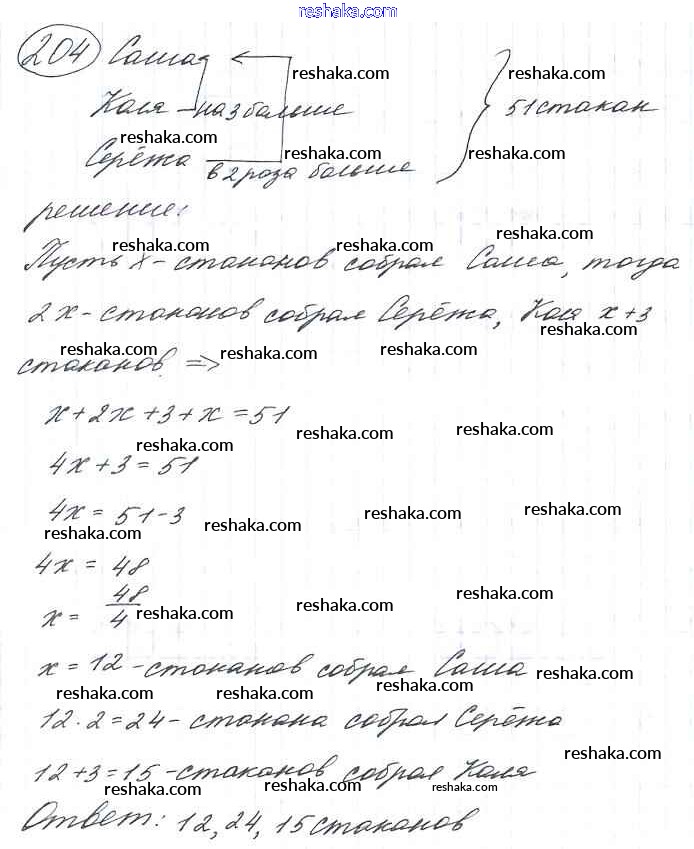 reshaka.com
204 Саша
reshaka.com reshaka.com
Коля - на 3 больше } 51 стакан
reshaka.com
Серёжа reshaka.com reshaka.com
в 2 роза больше
решение:
reshaka.com
reshaka.com reshaka.com
Пусть x - стаканов собрал Саша, тогда
2x - стаканов собрал Серёжа, Коля x+3
reshaka.com
reshaka.com reshaka.com reshaka.com
стаканов. =>
x + 2x + 3 + x = 51
reshaka.com reshaka.com
reshaka.com
4x + 3 = 51
4x = 51 - 3
reshaka.com reshaka.com reshaka.com
reshaka.com
4x = 48
x = 48/4
reshaka.com reshaka.com reshaka.com
x = 12 - стаканов собрал Саша
reshaka.com
reshaka.com reshaka.com reshaka.com
12 · 2 = 24 - стакана собрал Серёжа
reshaka.com
12 + 3 = 15 - стаканов собрал Коля
reshaka.com reshaka.com reshaka.com
Ответ: 12, 24, 15 стаканов